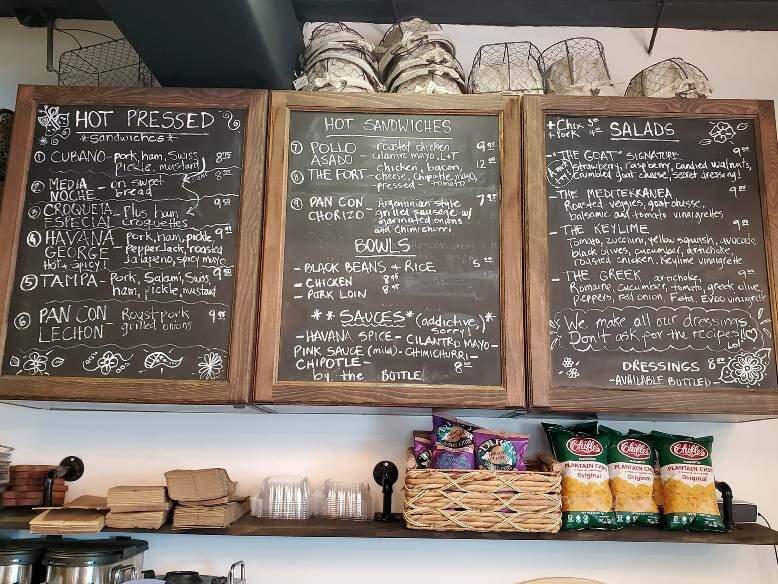 HOT PRESSED
*Sandwiches*
① CUBANO - pork, ham, Swiss,
pickle, mustard
② MEDIA - on sweet
NOCHE bread
③ CROQUETA - Plus ham 9.50
ESPECIAL croquettes
④ HAVANA - Pork, ham, pickle 9.50
GEORGE - pepperJack, roasted
Hot + Spicy! Jalapeño, spicy mayo
⑤ TAMPA - Pork, Salami, Swiss,
ham, pickle, mustard
⑥ PAN CON Roast pork
LECHON - grilled onions
HOT SANDWICHES
⑦ POLLO roasted chicken
ASADO - cilantro mayo, L+T
⑧ THE FORT - chicken, bacon,
cheese, Chipotle mayo,
- pressed - tomato
⑨ PAN CON - Argentinian style
CHORIZO grilled sausage w/
marinated onions
and chimichurri
BOWLS
- BLACK BEANS + RICE
- CHICKEN
- PORK LOIN
** SAUCES* (addictive, sorry!)**
- HAVANA SPICE - CILANTRO MAYO -
PINK SAUCE (mild) - CHIMICHURRI -
CHIPOTLE -
by the BOTTLE
+ Chix
+ Pork
SALADS
- "THE GOAT" SIGNATURE
Strawberry, raspberry, candied walnuts,
crumbled goat cheese, secret dressing!
- THE MEDITERRANEA
Roasted veggies, goat cheese,
balsamic and tomato vinaigrettes
- THE KEYLIME
Tomato, zucchini, yellow squash, avocado,
black olives, cucumber, artichoke
roasted chicken. Keylime vinaigrette
- THE GREEK artichoke,
Romaine, cucumber, tomato, greek olive,
peppers, red onion, Feta, EVOO vinaigrette
We make all our dressings
Don't ask for the recipes!!
Lol
DRESSINGS
- AVAILABLE BOTTLED -
Chifles
PLANTAIN CHIPS
Original
Chifles
PLANTAIN CHIPS
Original
Chifles
PLANTAIN CHIPS
Original